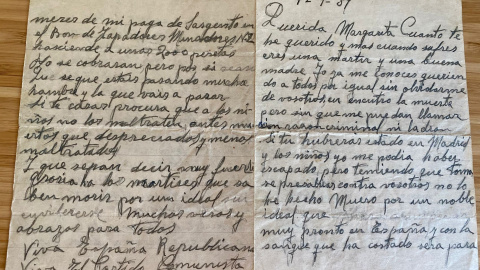 meses de mi paga de Sargento en
el Bon de Zapadores Minadores
hasciende a unas 2000 pesetas
No se cobrasan pero por si
que se que estais pasando mucha
hambre y la que vais a pasar
Si te procura que a los ni
ños no los maltraten antes mu
ertos que despreciados y menos
maltratados
I que sepan decir muy
ha los martires que sa
ben morir por un ideal sin
Muchos vesos y
abrazos para Todos
Viva España Republicana
Viva El Partido Comunista
Querida Margarita Cuanto te
he querido y mas cuando sufres
eres una martir y una buena
madre Yo ya me conoces querien
do a todos por igual sin olvidarme
de vosotros encuentro la muerte
pero sin que me puedan llamar
criminal ni ladron
Si tu hubieras estado en Madrid
y los niños yo me podia haber
escapado pero temiendo que Toma
se precalias contra vosotros no lo
he hecho Muero por un noble
ideal que
muy pronto en España y con la
sangre que ha costado sera para